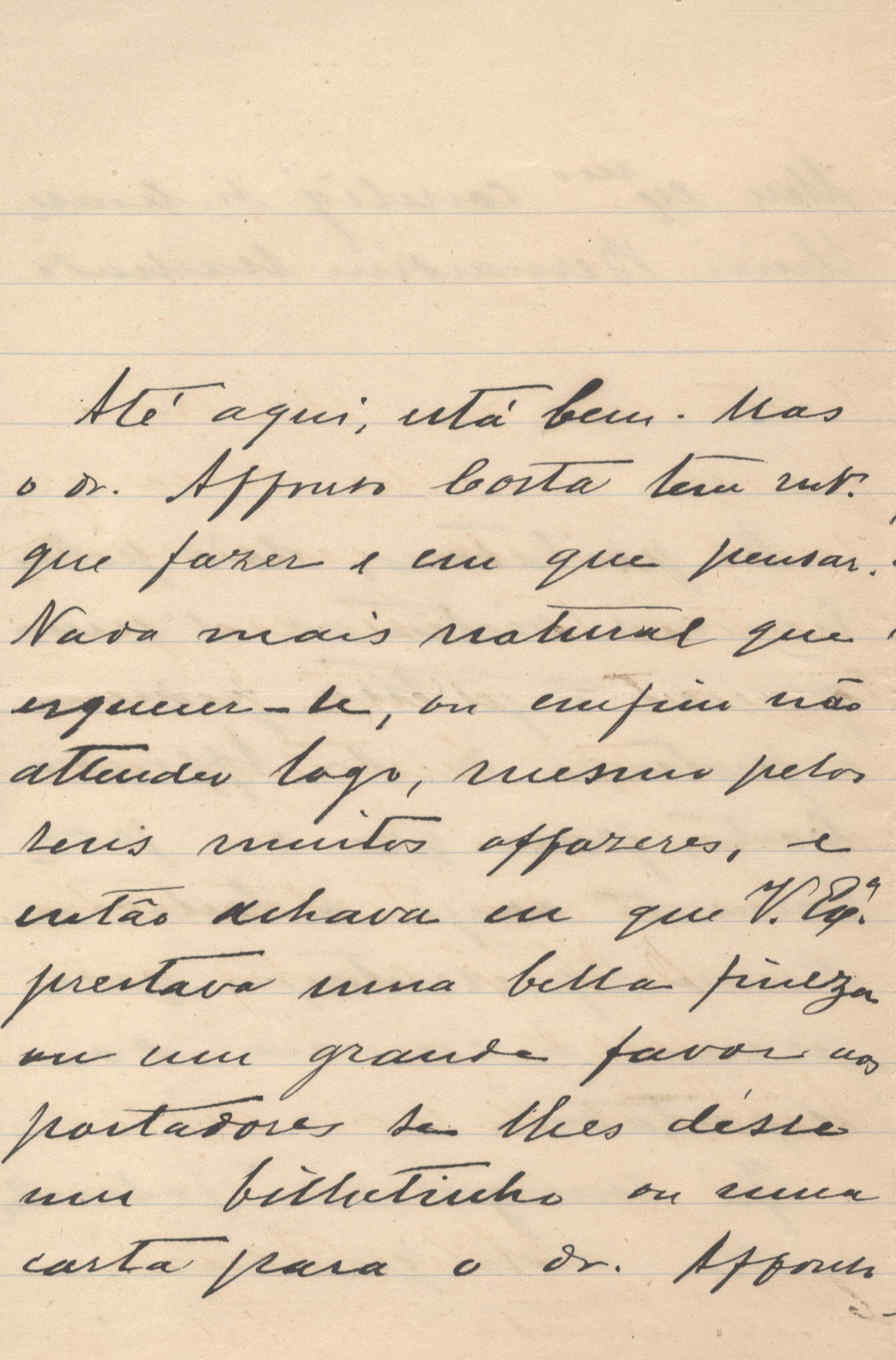 Até aqui, está bem. Mas
o dr. Affonso Costa tem mt.
que fazer e em que pensar.
Nada mais natural que
esquecer-se, ou emfim não
attender logo, mesmo pelos
seus muitos affazeres, e
então achava eu que V. Exª.
prestava uma bella fineza
ou um grande favor aos
portadores se lhes désse
um bilhetinho ou uma
carta para o dr. Affonso